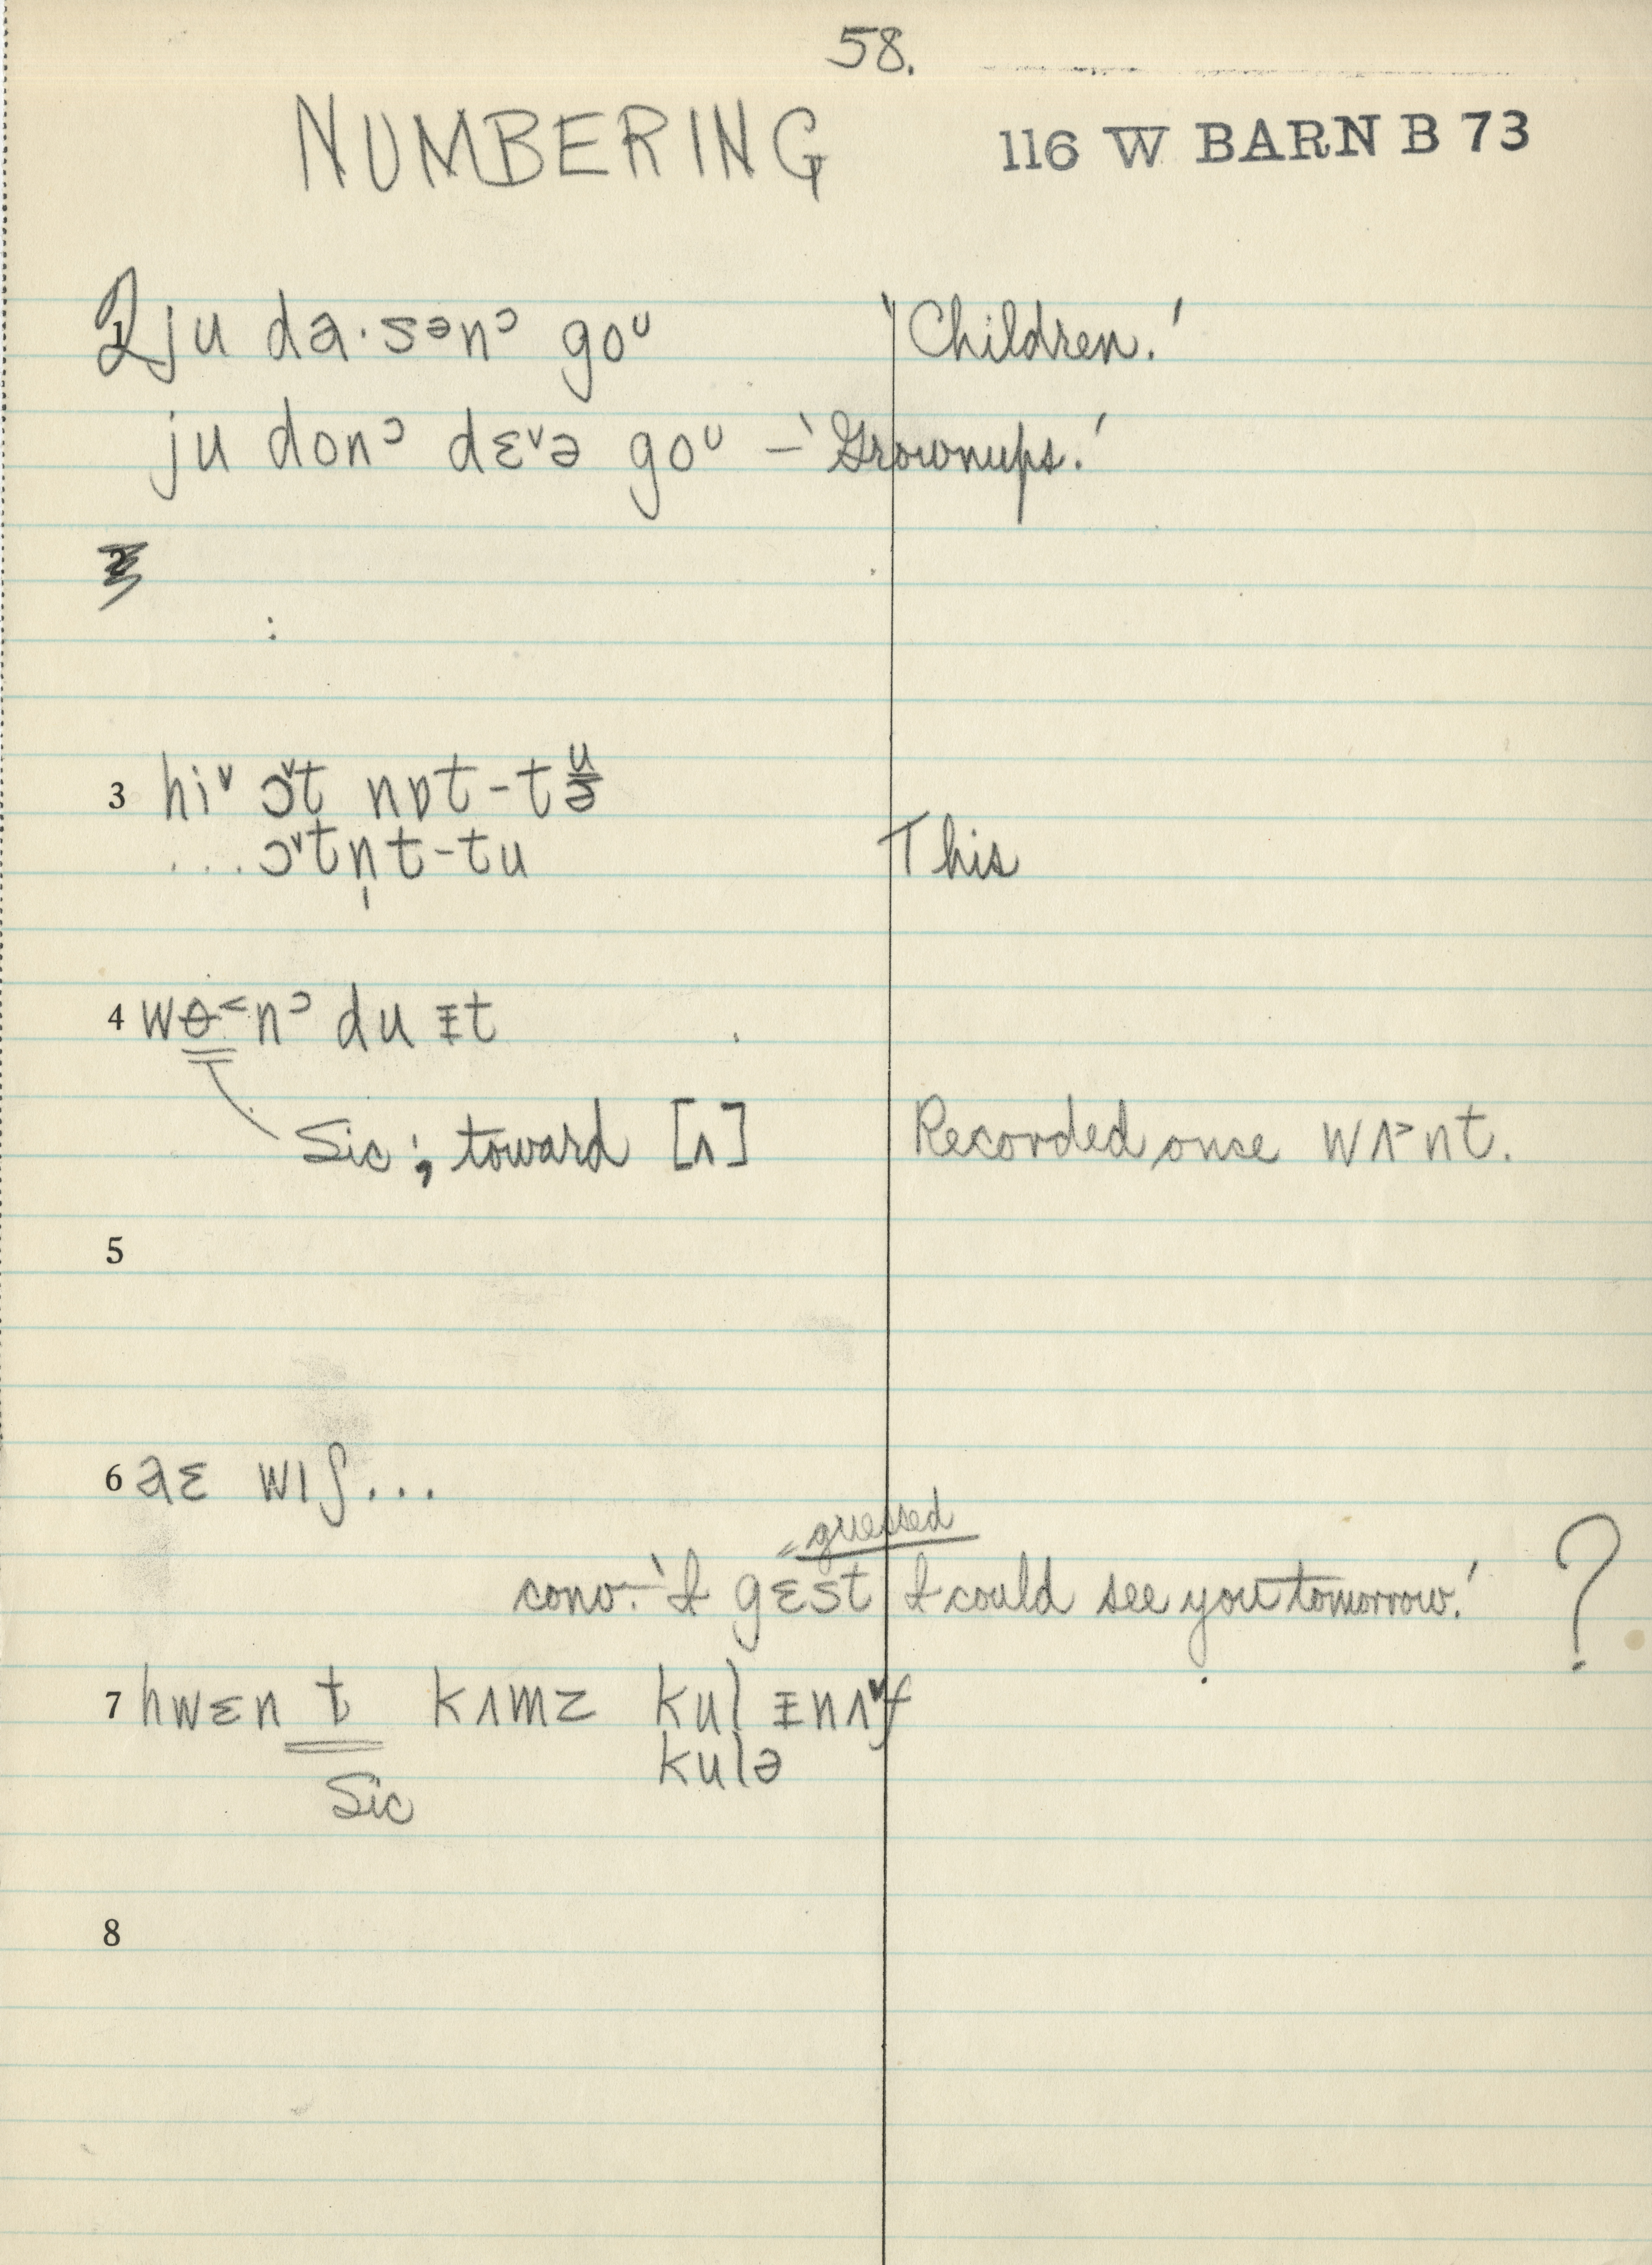 58.
NUMBERING 116 W BARN B 73
2 ju da·sənᵓ goᵁ 'Children.'
ju donᵓ dɛᵛə goᵁ – 'Grownups.'
3 hiᵛ ɔᵛt nɒt-tu/ə
...ɔᵛtn̩t-tu This
4 wɵ˂nᵓ du ᵻt
Sic; toward [ʌ] Recorded once wʌ˃nt.
5
6 aɛ wɪʃ...
= guessed
conv. – 'I gɛst I could see you tomorrow.' ?
7 hwɛn t kʌmz kul ᵻnʌᵛf
kulə
Sic
8